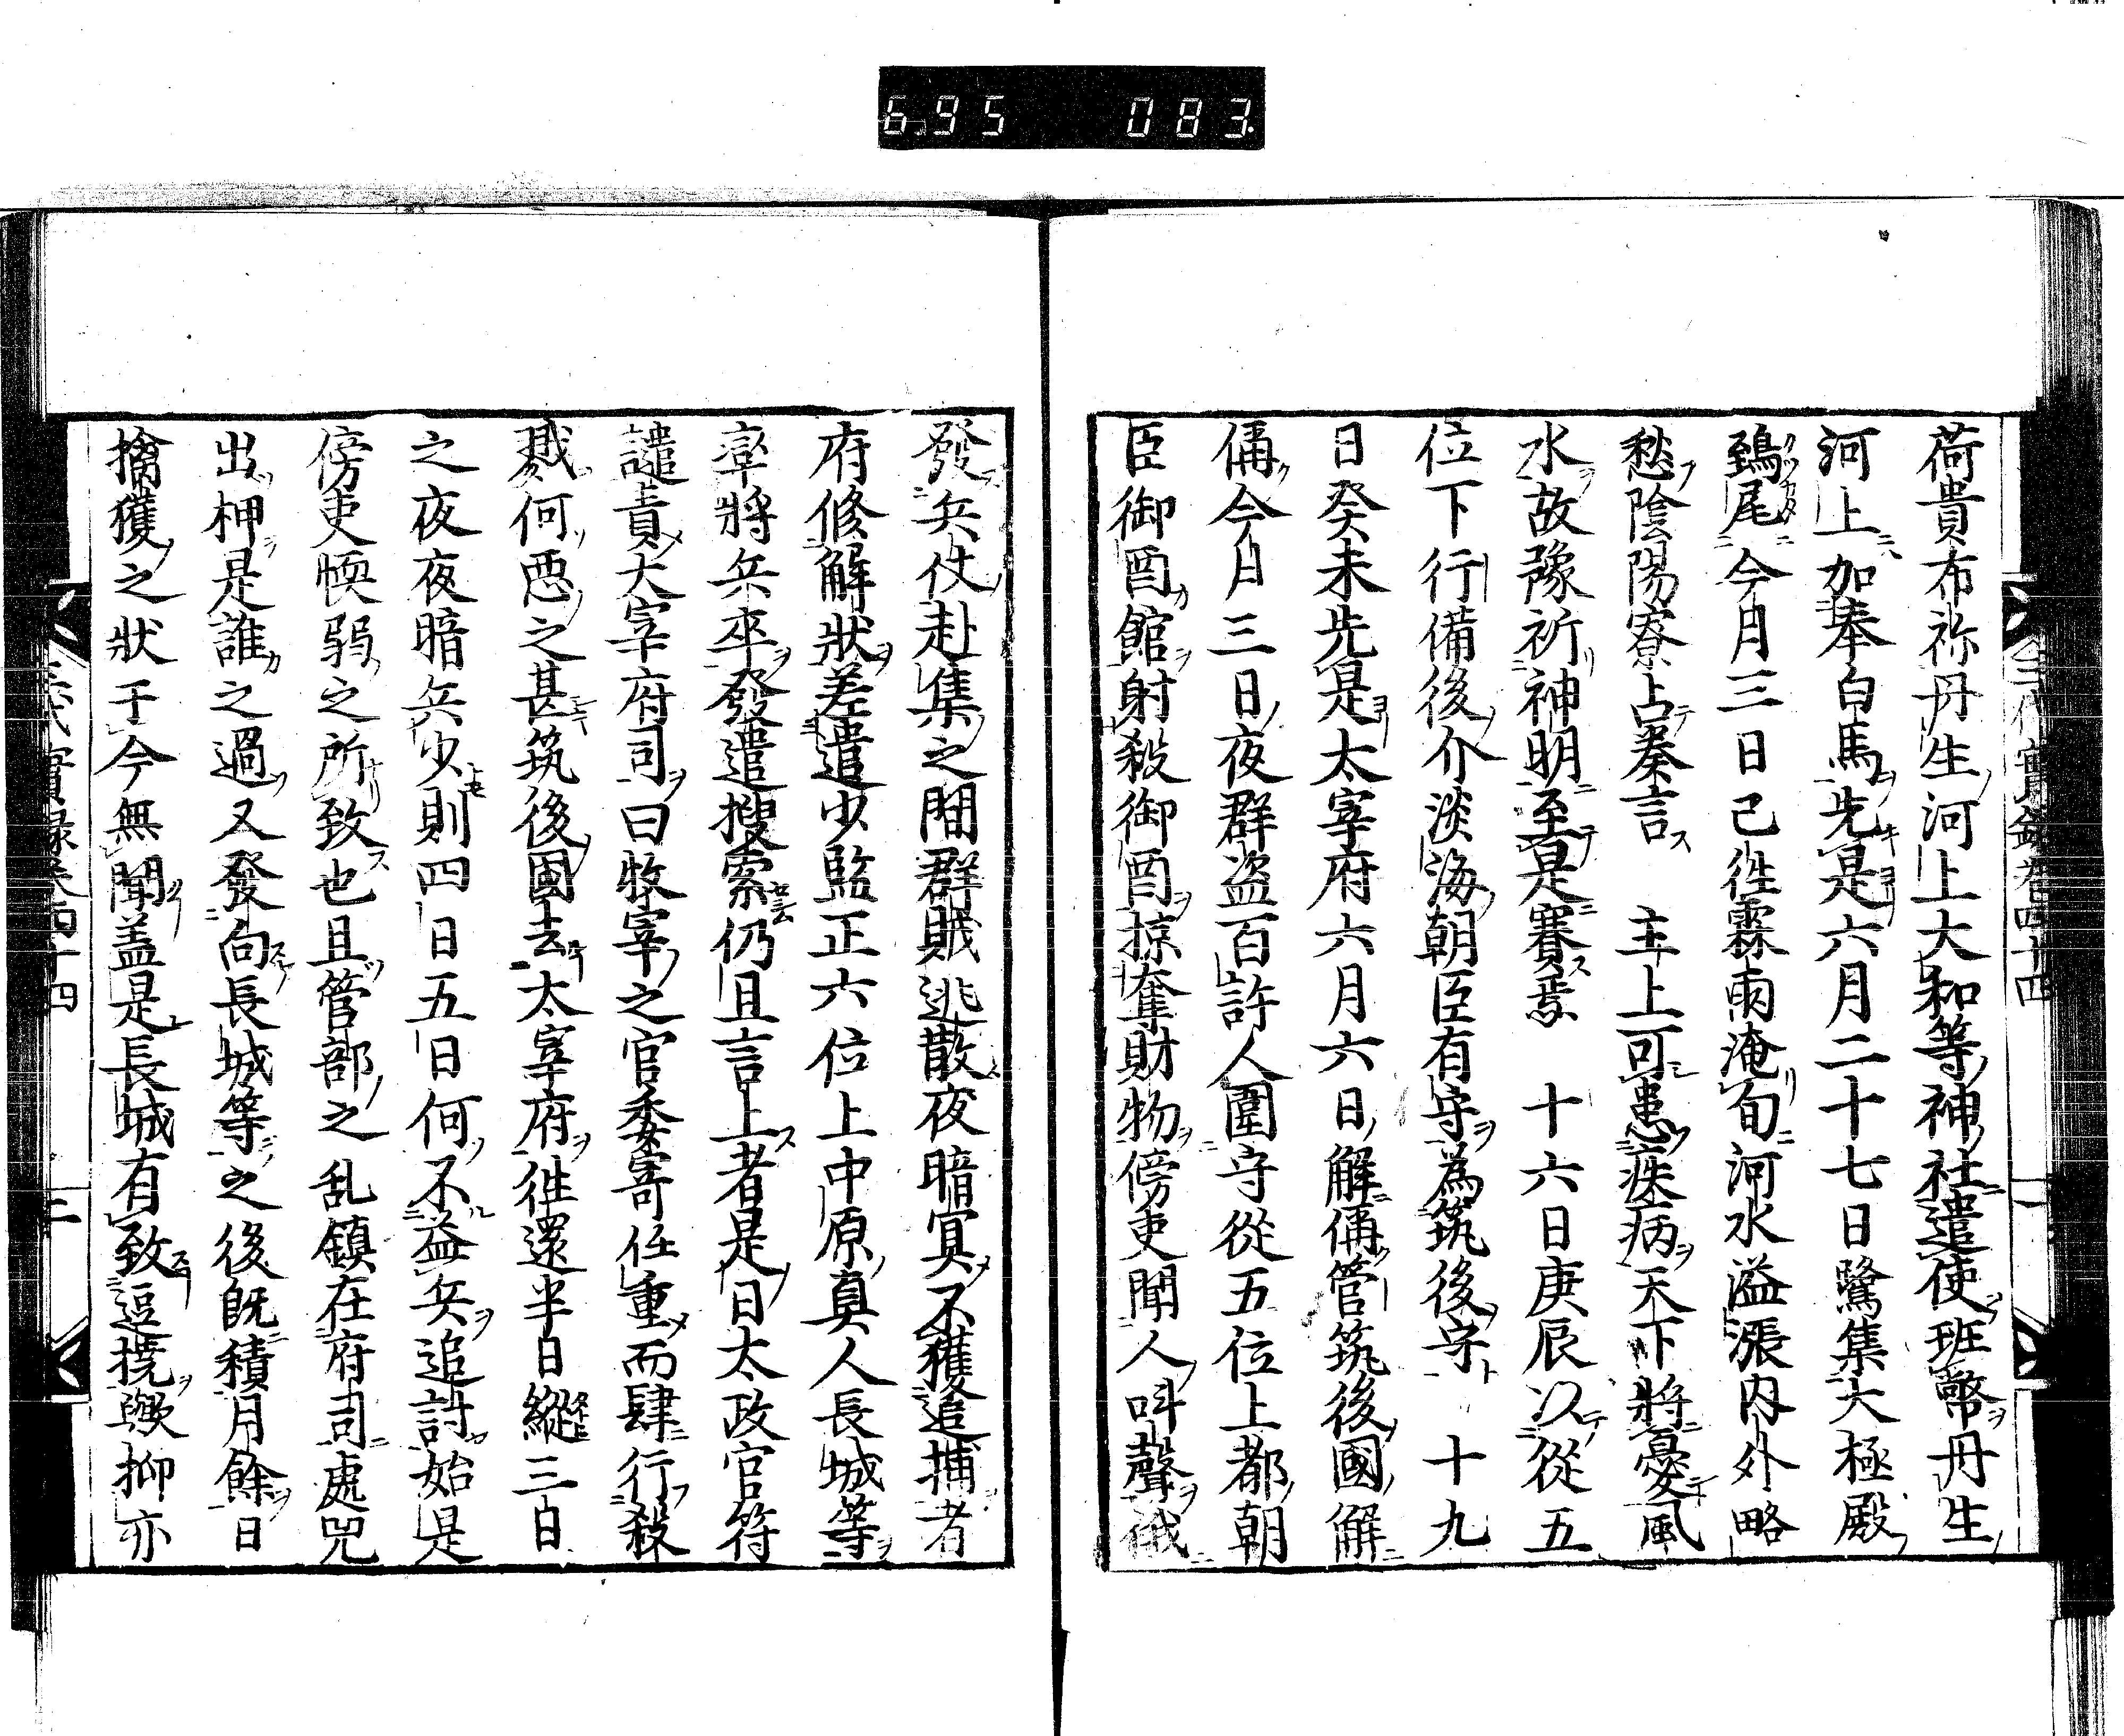 6.95 083.
三代實録卷四十四
荷貴布祢丹生河上大和等神社遣使班幣丹生
河上加奉白馬先是六月二十七日鷺集大極殿
鵄尾今月三日已徃霖雨淹旬河水溢漲内外略
愁陰陽寮占奏言 主上可患疾病天下將憂風
水故豫祈神明至是賽焉 十六日庚辰以從五
位下行備後介淡海朝臣有守爲筑後守 十九
日癸未先是太宰府六月六日解偁管筑後國解
偁今月三日夜群盗百許人圍守從五位上都朝
臣御酉館射殺御酉掠奪財物傍吏聞人呌聲
發兵仗赴集之間群賊逃散夜暗冥不獲追捕者
府修解狀差遣少監正六位上中原真人長城等
率將兵卒發遣搜索仍且言上者是日太政官符
譴責大宰府司曰牧宰之官委寄任重而肆行殺
戮何惡之甚筑後國去太宰府徃還半日縱三日
之夜夜暗兵少則四日五日何不益兵追討始是
傍吏愞弱之所致也且管部之乱鎮在府司處兕
出柙是誰之過又發向長城等之後既積月餘日
擒獲之狀于今無聞盖是長城有致逗撓歟抑亦